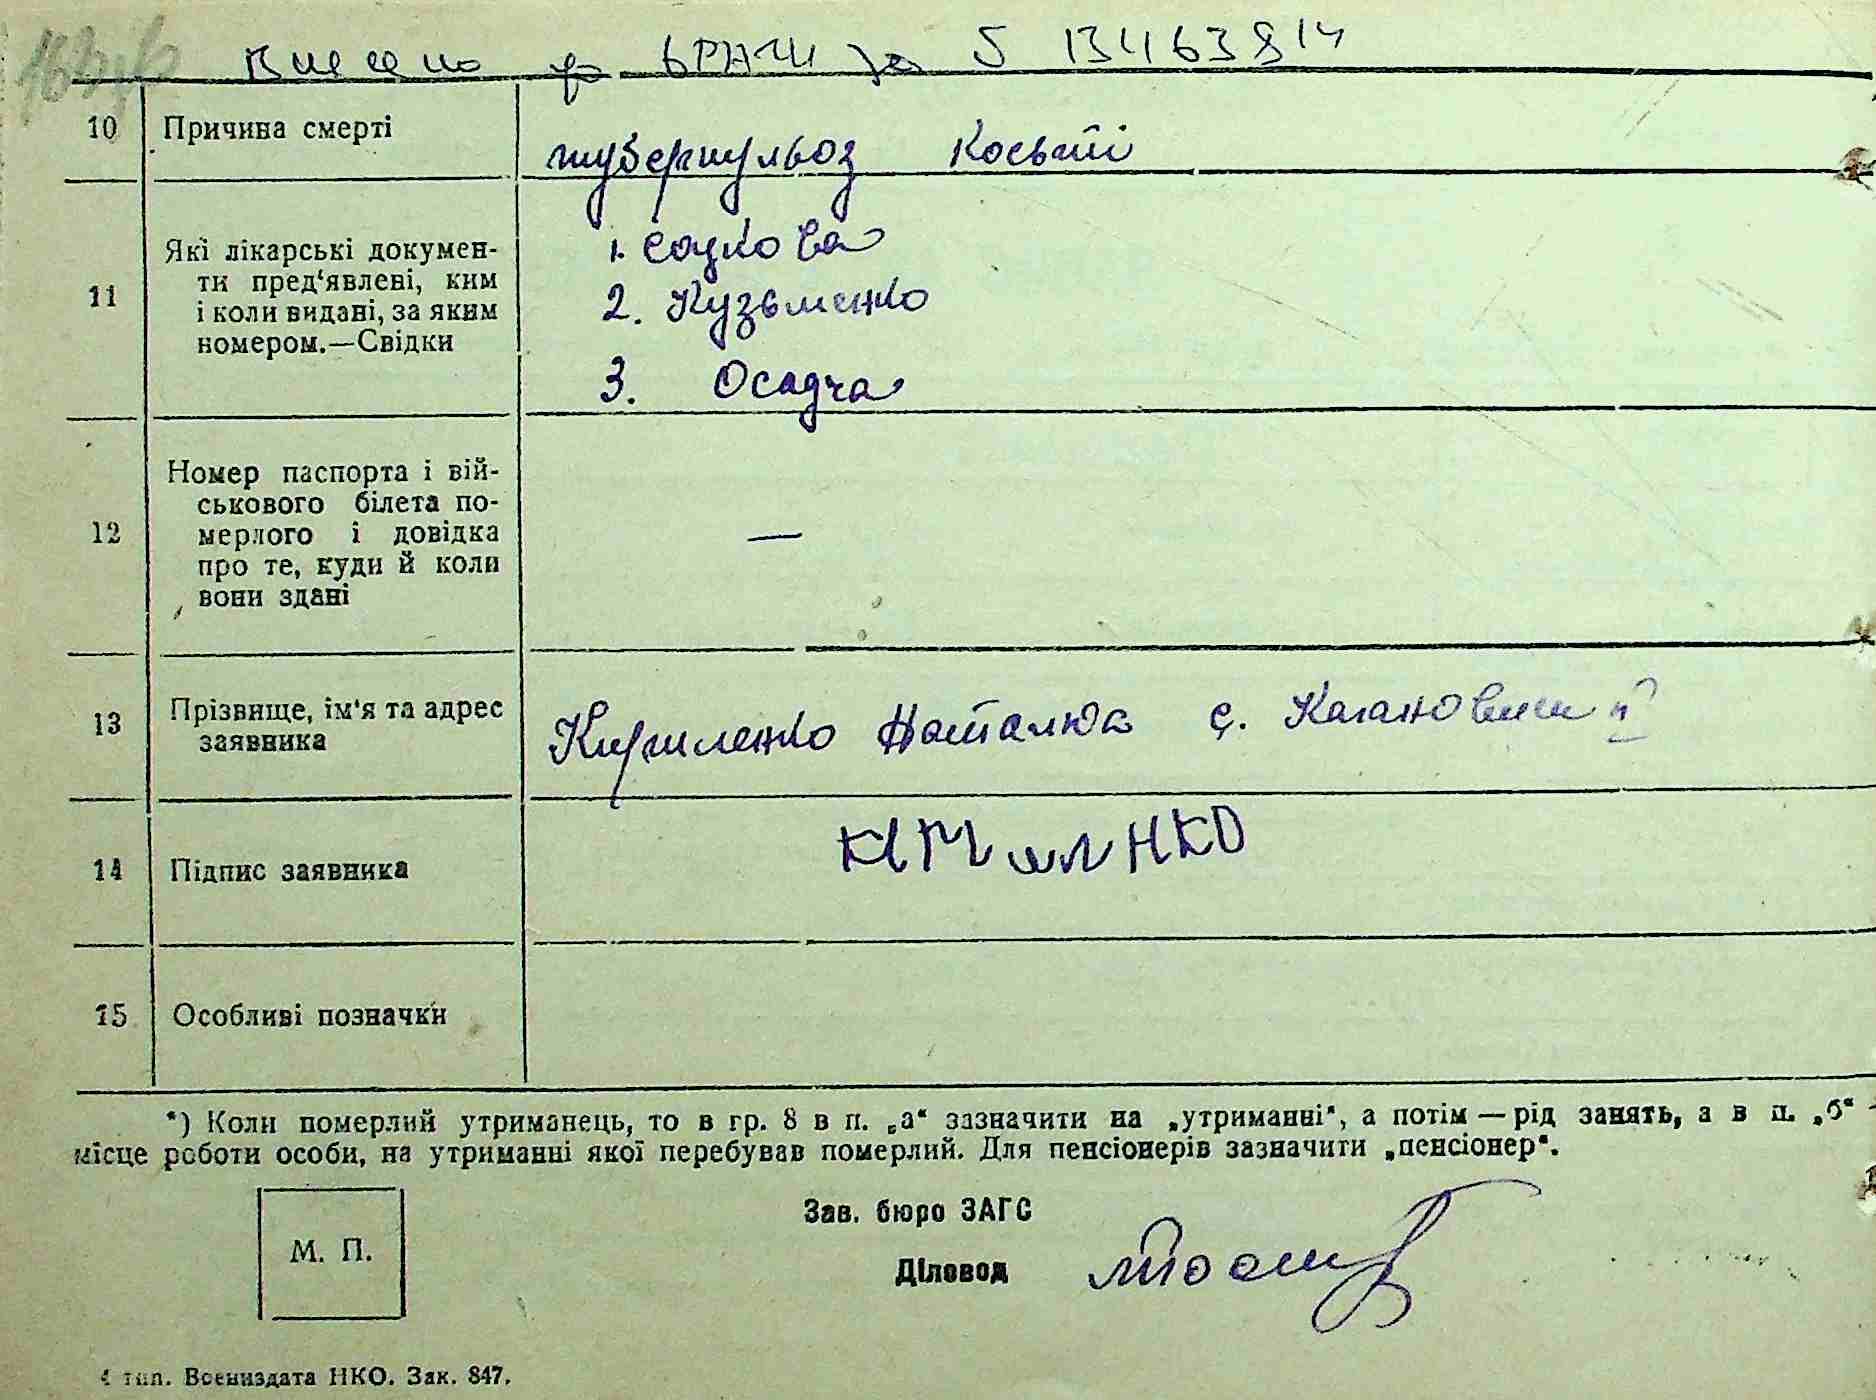 Внесено до ДРАЦС за № 13463814
10 Причина смерті
туберкульоз Костей
11 Які лікарські докумен-
ти пред‘явлені, ким
і коли видані, за яким
номером.—Свідки
1. Соцкова
2. Кузьменко
3. Осадча
12 Номер паспорта і вій-
ськового білета по-
мерлого і довідка
про те, куди й коли
вони здані
—
13 Прізвище, ім‘я та адрес
заявника
Кириленко Наталка с.
14 Підпис заявника
15 Особливі позначки
*) Коли померлий утриманець, то в гр. 8 в п. „а“ зазначити на „утриманні“, а потім — рід занять, а в п. „б“ -
місце роботи особи, на утриманні якої перебував померлий. Для пенсіонерів зазначити „пенсіонер“.
М. П.
Зав. бюро ЗАГС
Діловод
4 тип. Воениздата НКО. Зак. 847.